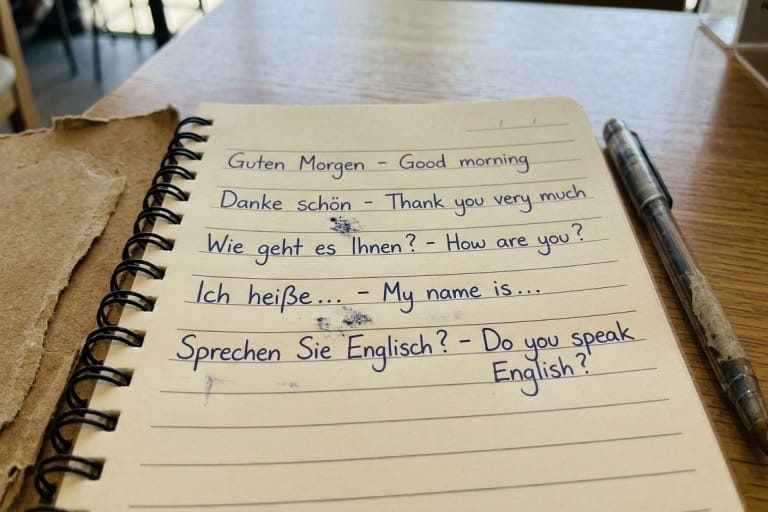 Guten Morgen - Good morning
Danke schön - Thank you very much
Wie geht es Ihnen? - How are you?
Ich heiße... - My name is...
Sprechen Sie Englisch? - Do you speak
English?